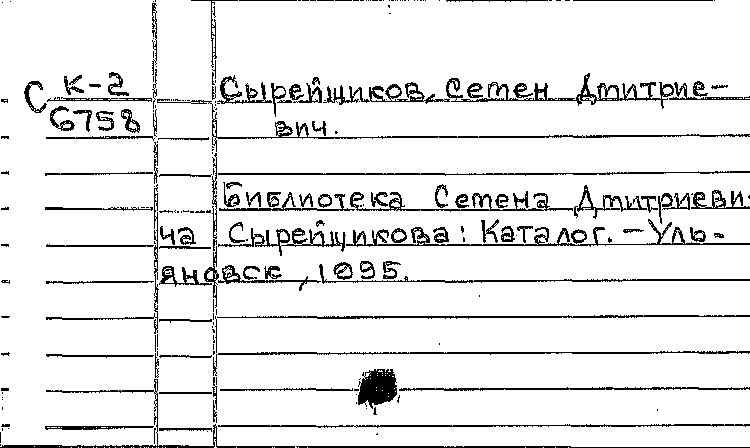 С К-2
6758
Сырейщиков, Семен Дмитрие-
вич.
Библиотека Семена Дмитриеви-
ча Сырейщикова: Каталог. - Уль-
яновск, 1995.